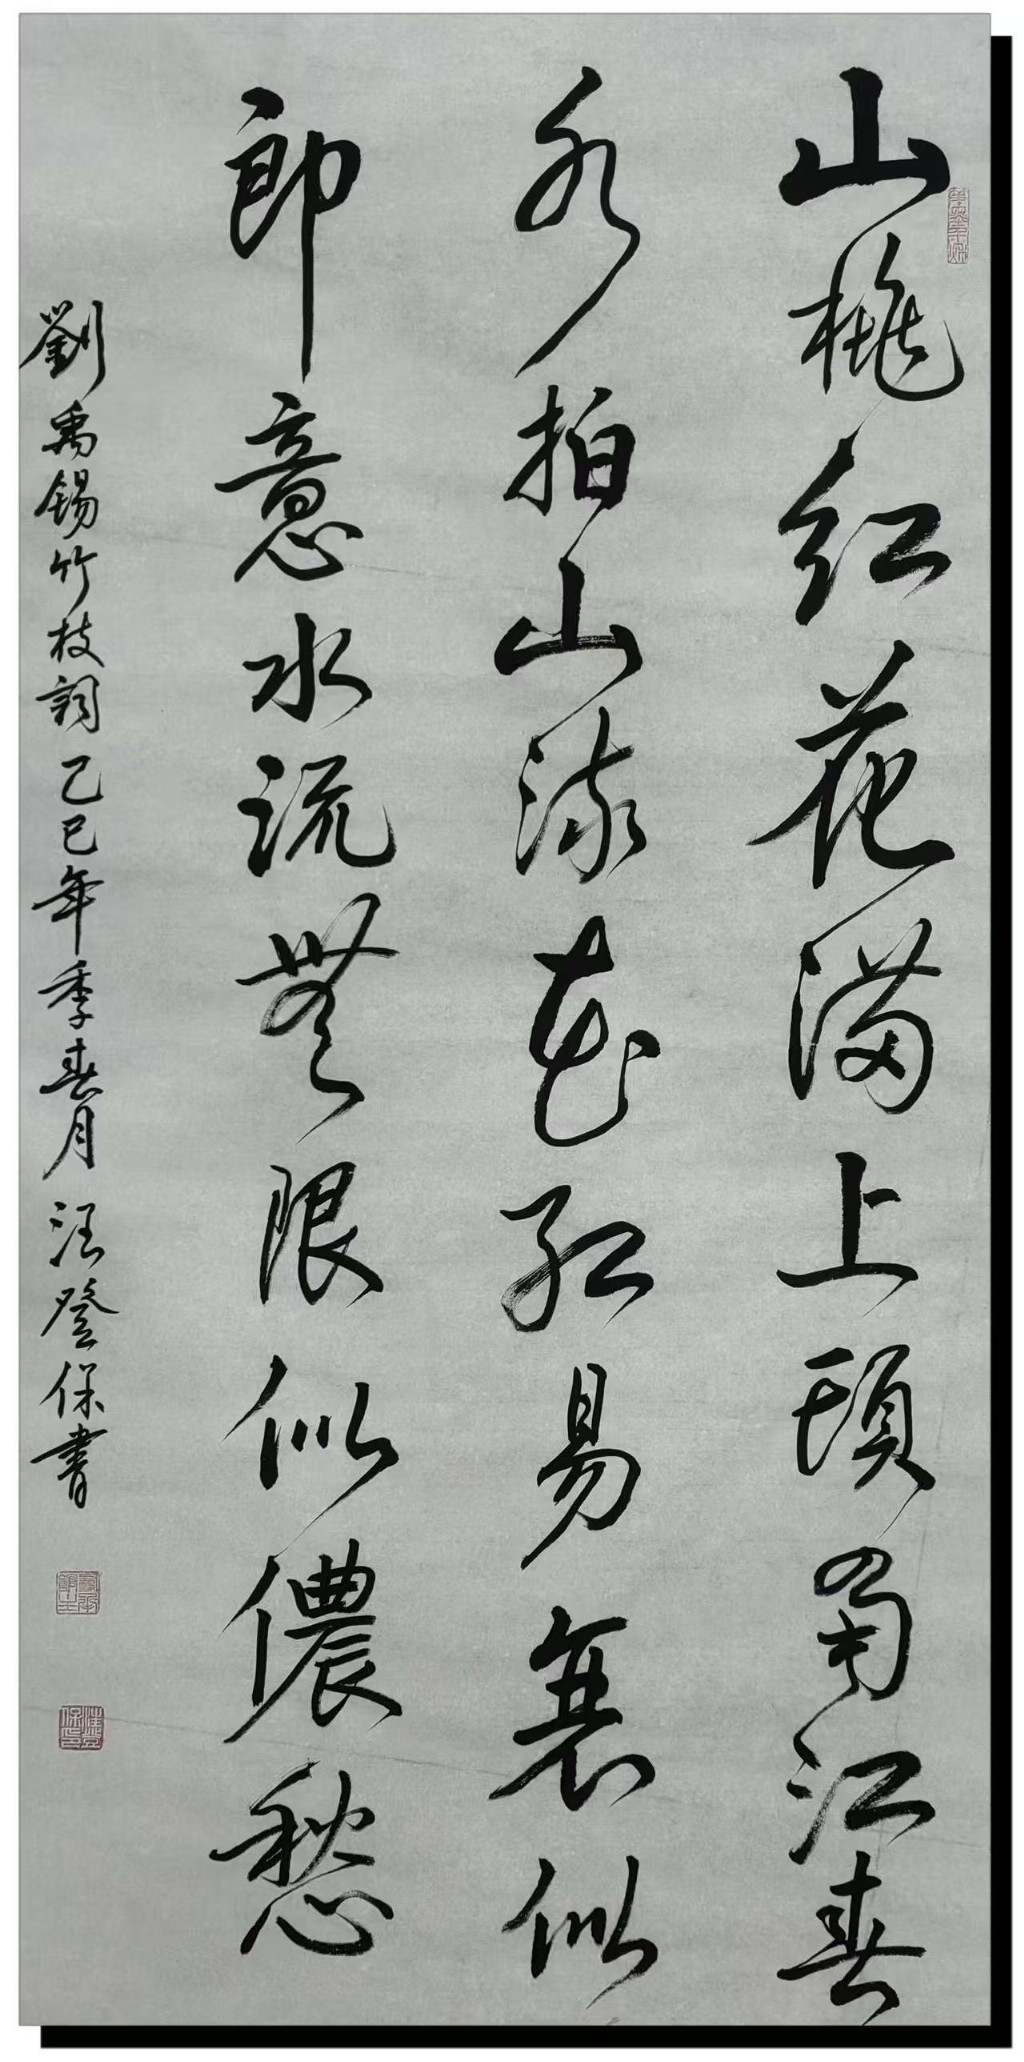 山桃红花满上頭蜀江春
水拍山流花红易衰似
郎意水流無限似儂愁
劉禹錫竹枝詞乙巳年季春月汪登保書